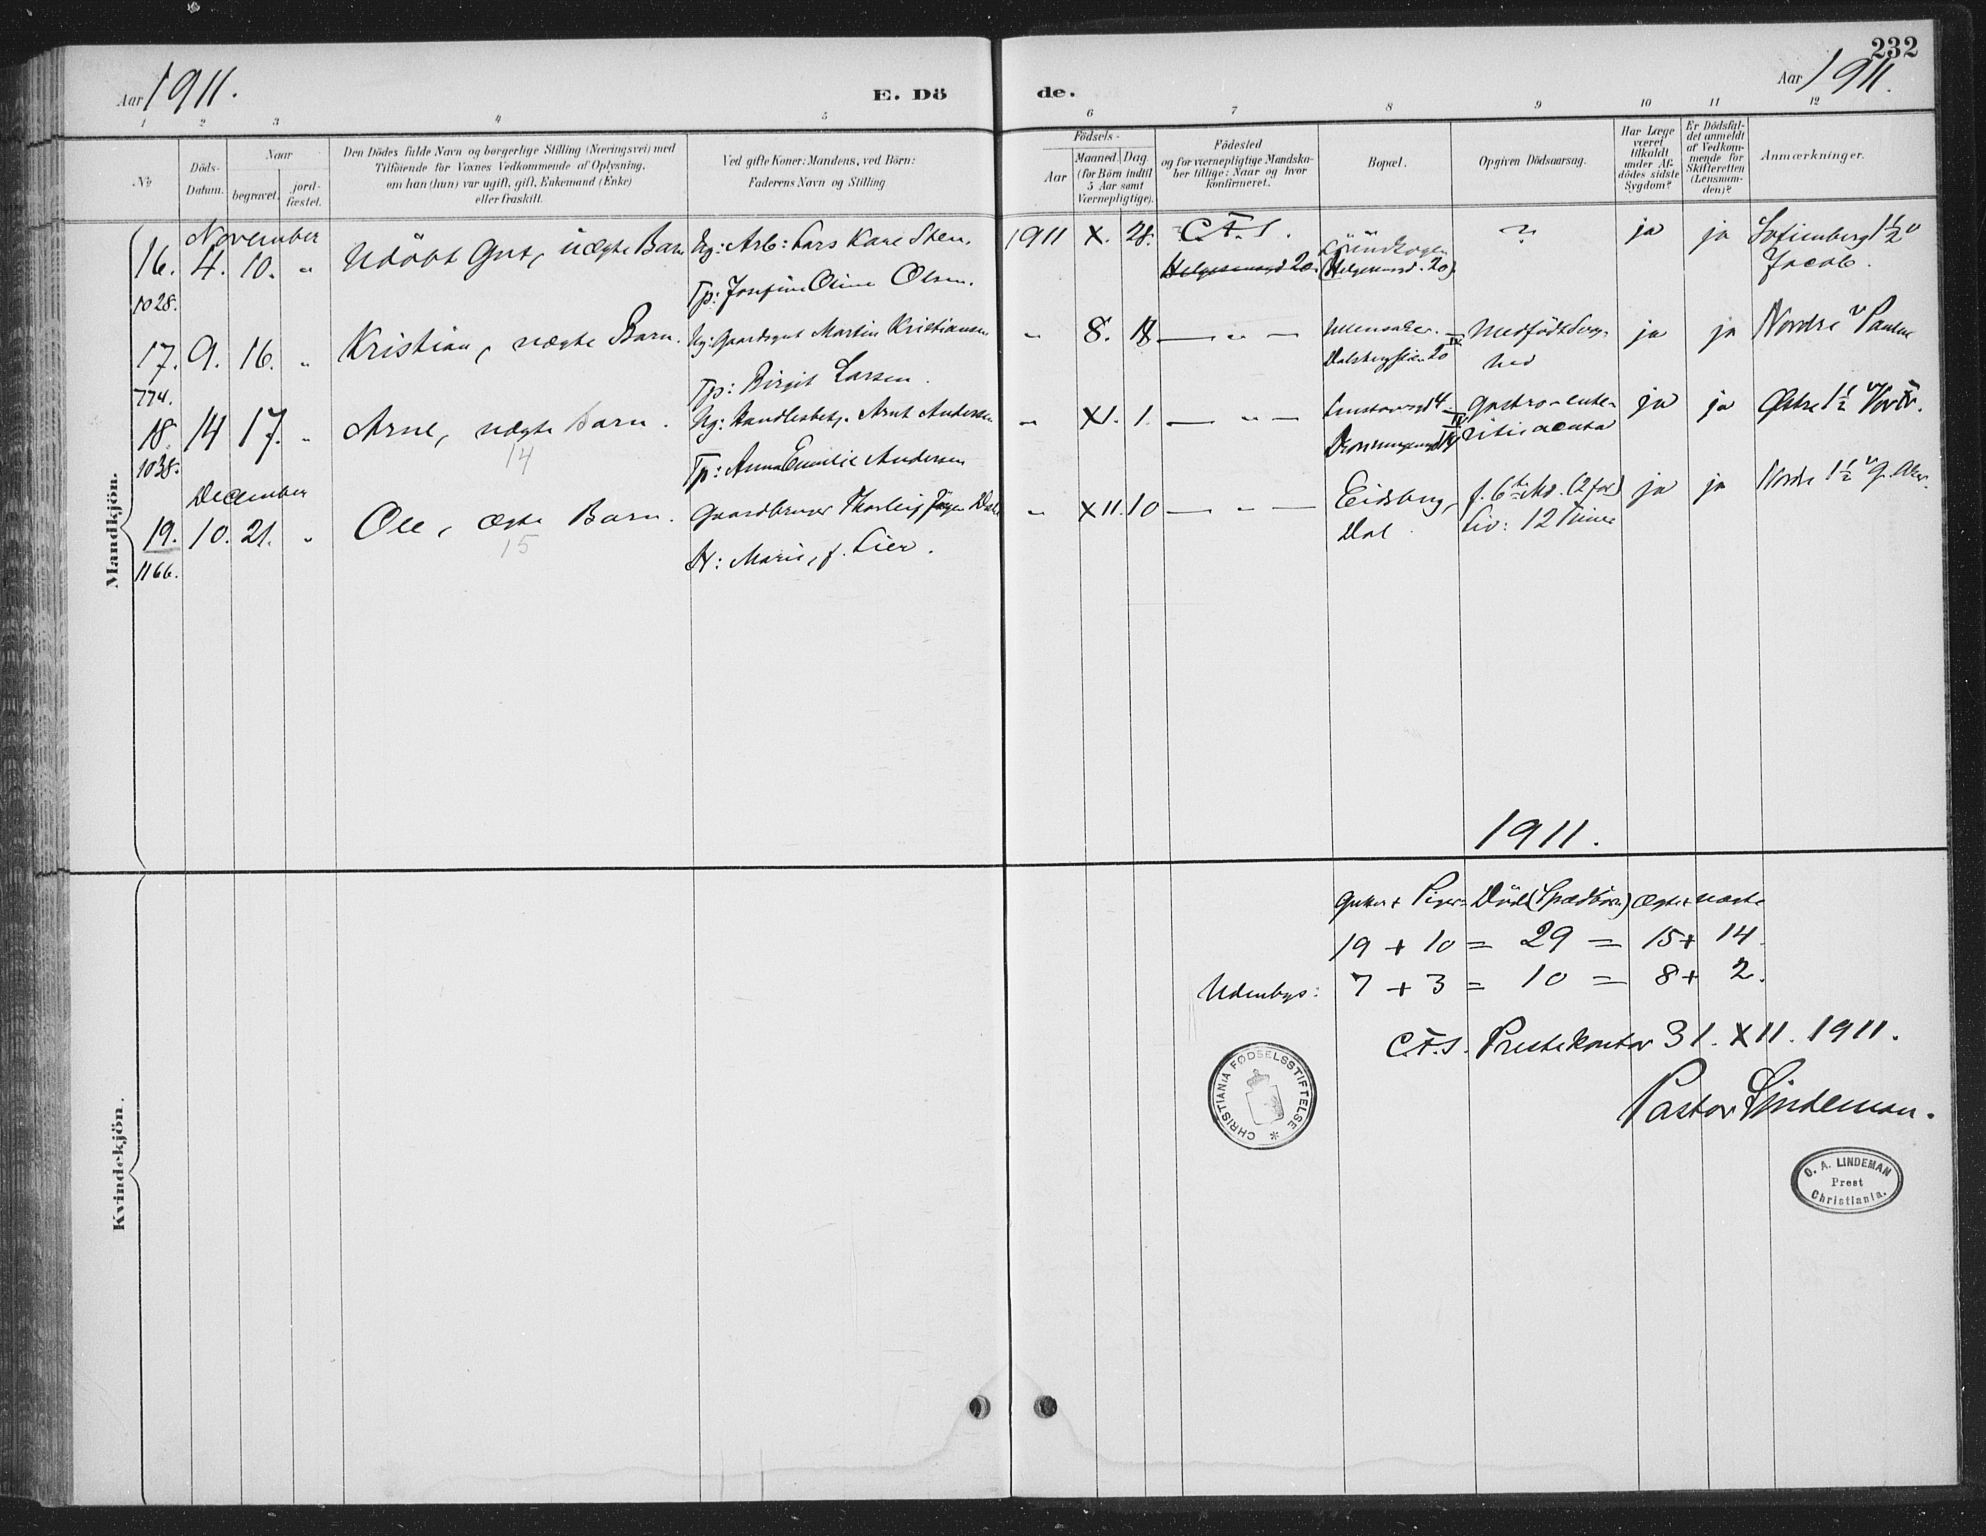 232
Aar 1911.
E. Dö
de.
Aar 1911.
1 2 3 4 5 6 7 8 9 10 11 12
No
Döds-
Datum.
Naar
begravet.
jord-
fæstet.
Den Dödes fulde Navn og borgerlige Stilling (Næringsvei) med
Tilföiende for Voxnes Vedkommende af Oplysning,
om han (hun) var ugift, gift, Enkemand (Enke)
eller fraskilt.
Ved gifte Koner: Mandens, ved Börn:
Faderens Navn og Stilling
Födsels-
Aar
Maaned. Dag.
(for Börn indtil
5 Aar samt
Værnepligtige).
Födested
og for værnepligtige Mandska-
ber tillige: Naar og hvor
konfirmeret.
Bopæl.
Opgiven Dödsaarsag.
Har Læge
været
tilkaldt
under Af-
dödes sidste
Sygdom?
Er Dödsfal-
det anmeldt
af Vedkom-
mende for
Skifteretten
(Lensman-
den)?
Anmærkninger.
Mandkjön.
November
16. 4. 10. " Udöbt Gut, uægte Barn Ug: Arb: Lars Kare Sten. 1911 X. 28. C.F.S. ? ja ja Sofienberg 1½
Jacob.
1028. Tp: Josefine Oline Olsen. Helgesensgd 20. (Helgesensgd. 20)
17. 9. 16. " Kristian, uægte Barn. Ug: Gaardsgut Martin Kristiansen " 8. 18 — " — Ullensaker. Medfödt Svag- ja ja Nordre
hed
774. Tp: Birgit Larsen. Dalsbergstien 20
18. 14 17. " Arne, uægte Barn. Ug: Handlesbetj. Arnt Andersen " XI. 1. — " — Gastro-ente- ja ja Östre 1½ Vor Fr.
14
ritis acuta
1038. Tp: Anna Emilie Andersen
December
19. 10. 21. " Ole, ægte Barn. Gaardbruger Thorleif Dahl " XII. 10 — " — Eidsberg, f. 6te Md. (2 for) ja ja Nordre 1½ G. Aker.
15
Dal Liv: 12 Timer
1166. H: Marie, f. Lier.
1911.
Gutter + Piger = Döde (Spædbörn) Ægte + uægte
19 + 10 = 29 = 15 + 14.
Udenbys: 7 + 3 = 10 = 8 + 2.
C.F.S. Prestekontor 31. XII. 1911.
Pastor Lindeman.
CHRISTIANIA FØDSELSSTIFTELSE *
O. A. LINDEMAN
Prest
Christiania.
Kvindekjön.